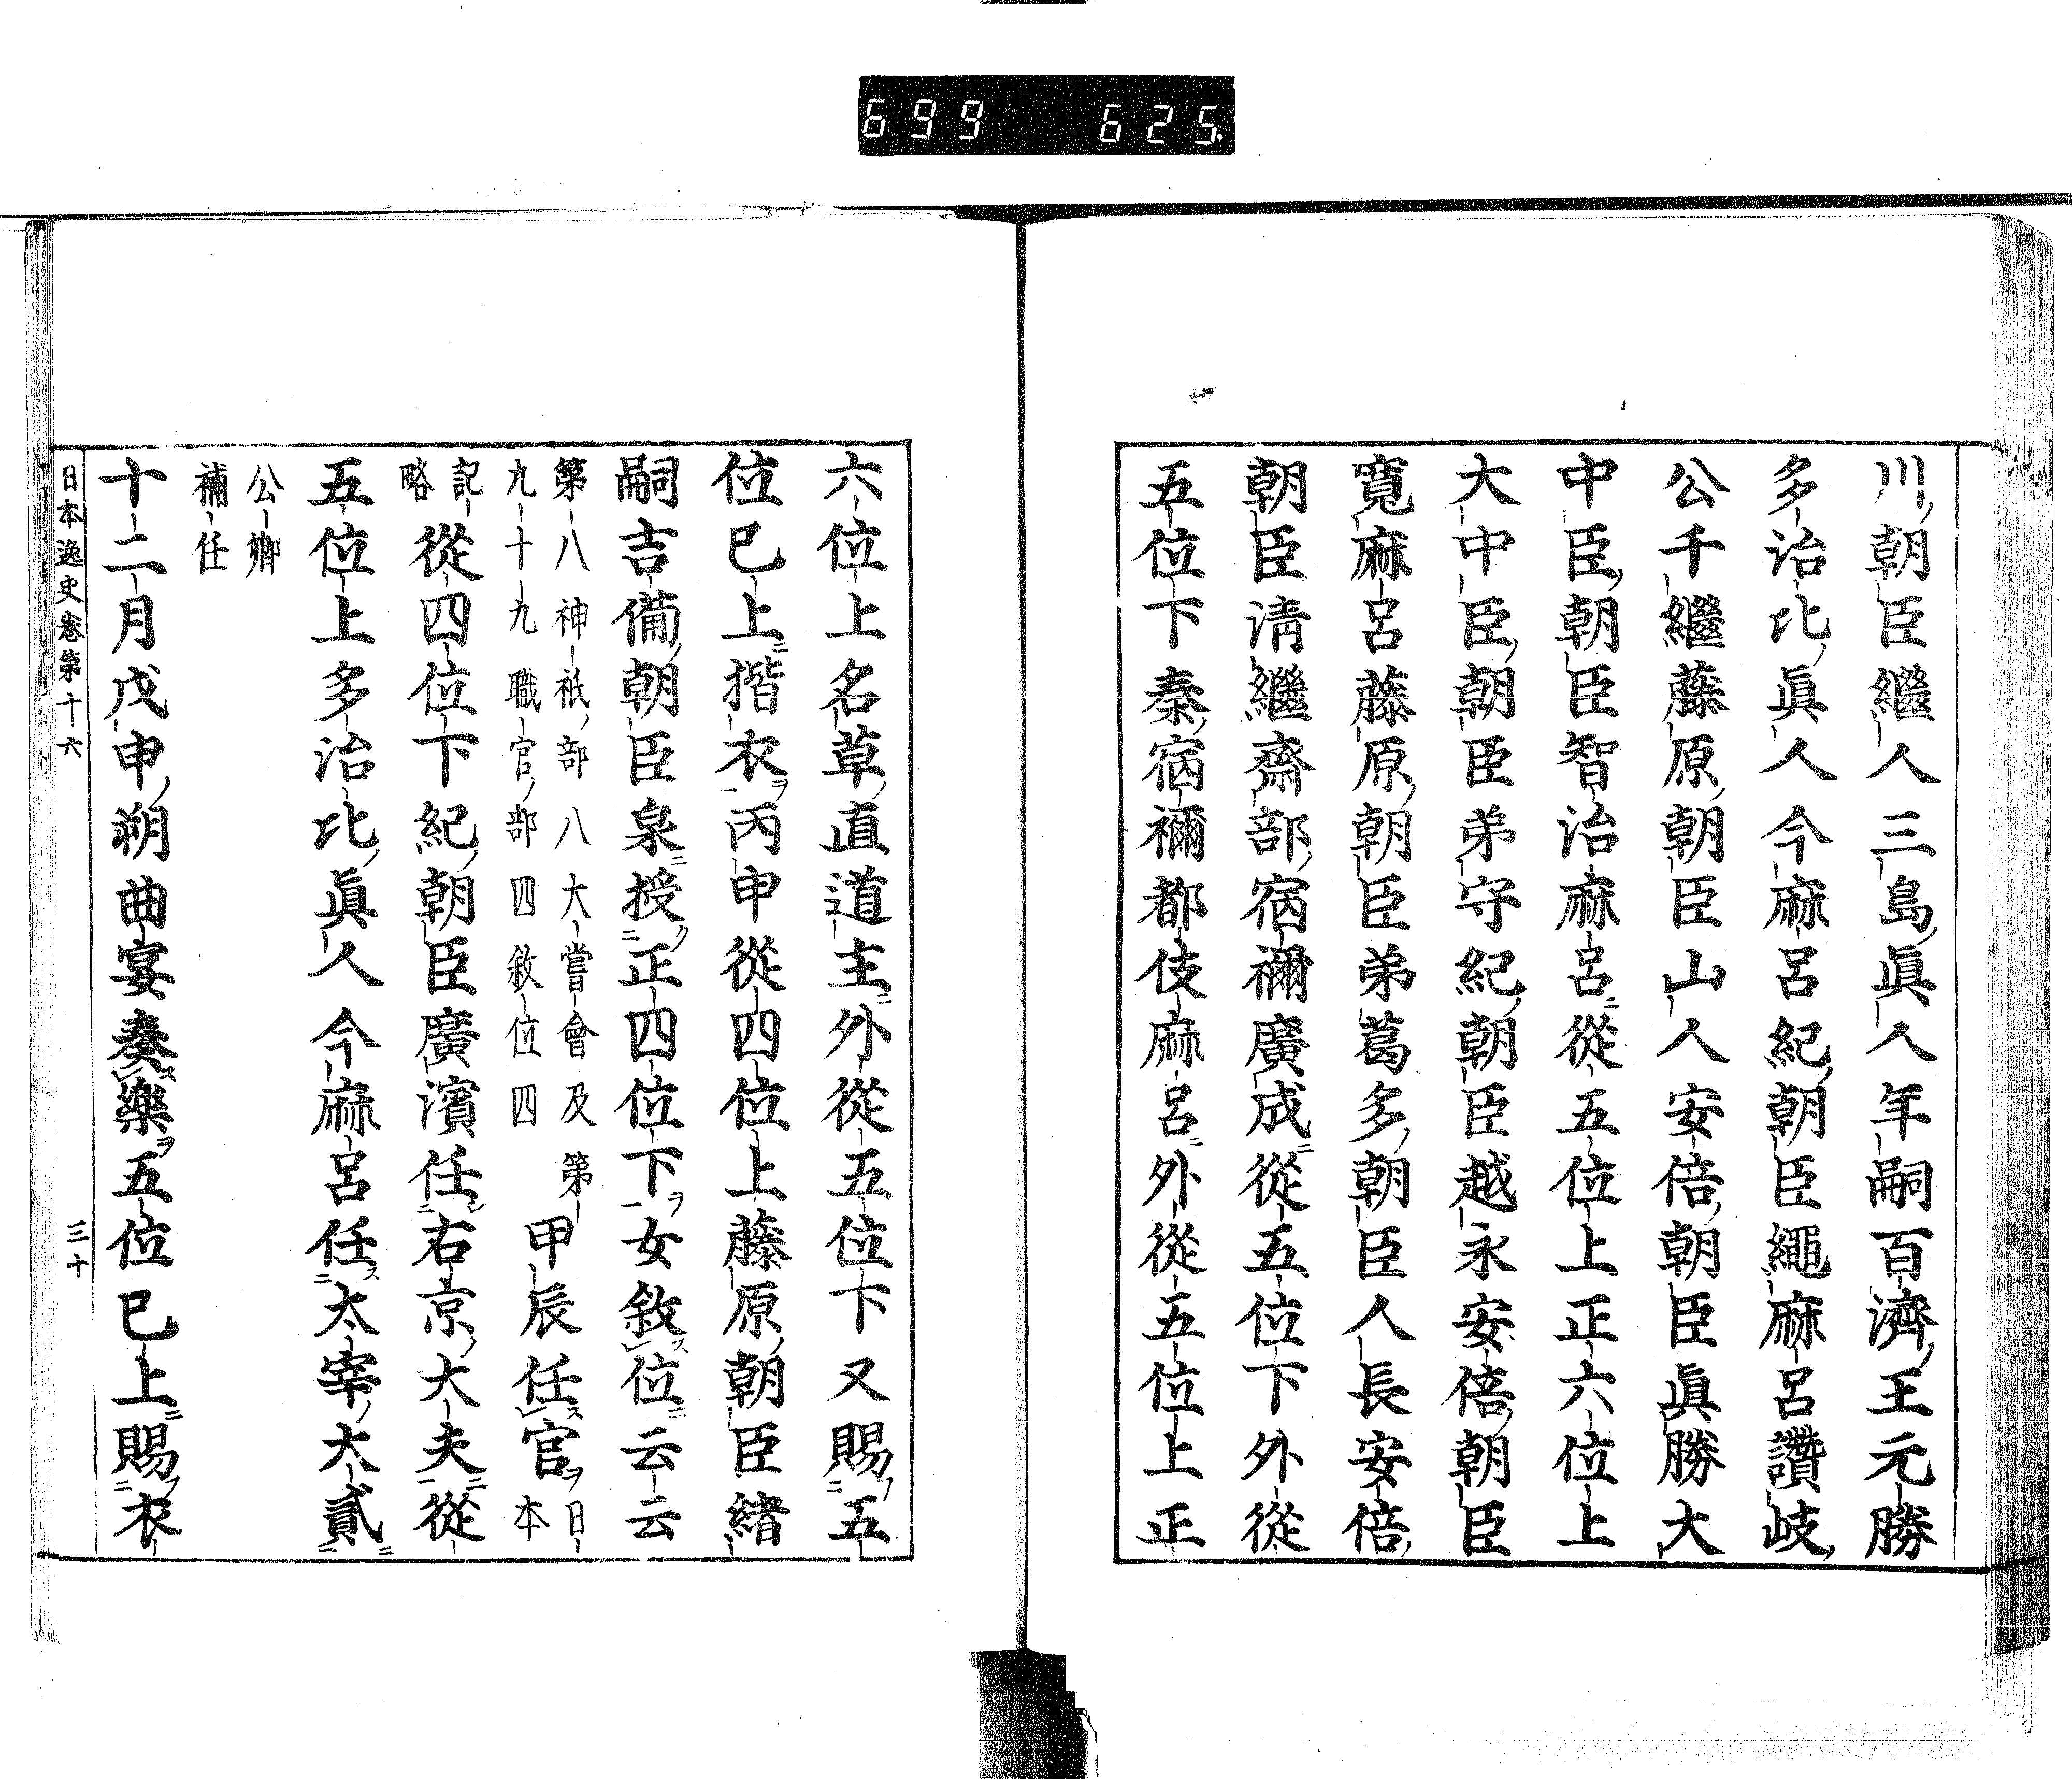 699 625
川朝臣繼人三島眞人年嗣百濟王元勝
多治比眞人今麻呂紀朝臣繩麻呂讚岐
公千繼藤原朝臣山人安倍朝臣眞勝大
中臣朝臣智治麻呂從五位上正六位上
大中臣朝臣弟守紀朝臣越永安倍朝臣
寬麻呂藤原朝臣弟葛多朝臣人長安倍
朝臣淸繼齋部宿禰廣成從五位下外從
五位下秦宿禰都伎麻呂外從五位上正
六位上名草直道主外從五位下又賜五
位已上揩衣丙申從四位上藤原朝臣緖
嗣吉備朝臣泉授正四位下女敘位云云
第八神祇部八大嘗會及第
九十九職官部四敘位四
甲辰任官日本
記略從四位下紀朝臣廣濱任右京大夫從
五位上多治比眞人今麻呂任太宰大貳
公卿
補任
十二月戊申朔曲宴奏樂五位已上賜衣
日本逸史卷第十六 三十